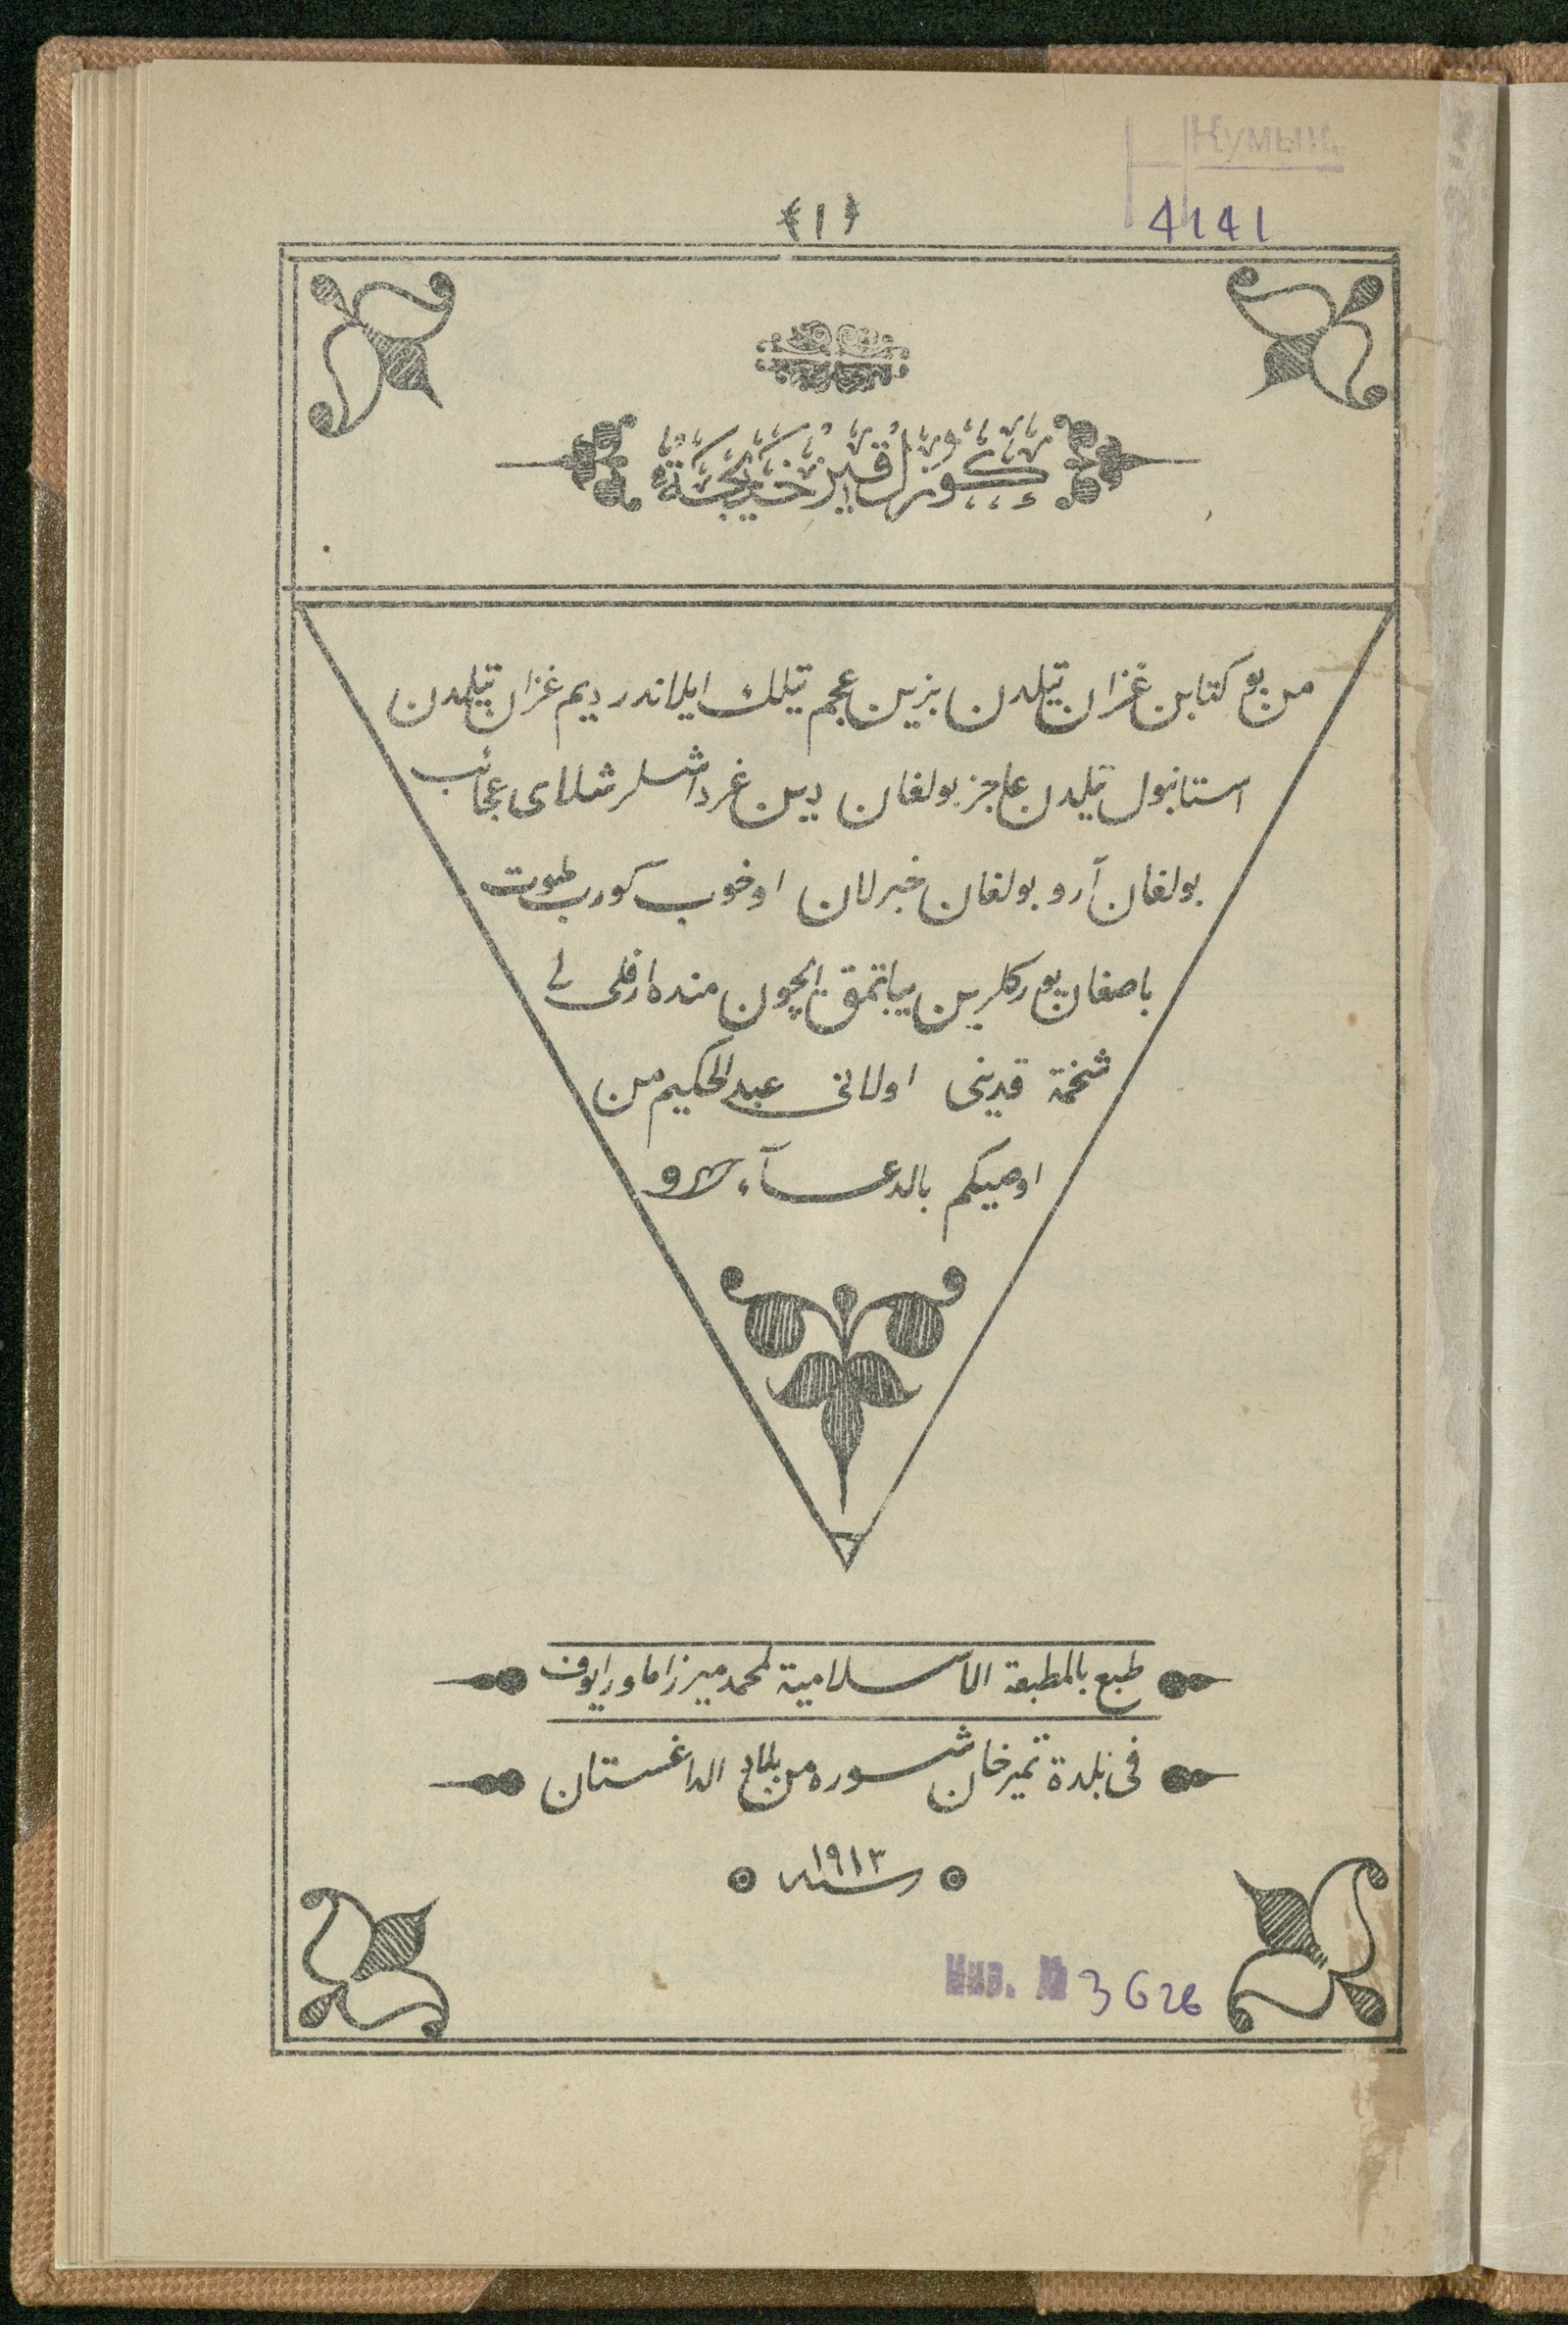 Кумыц.
4141
﴿١﴾
كوزل قيز خديجة
من بو كتابن غزان تيلدن بزين عجم تيلك ايلاندرديم غزان تيلدن
استانبول تيلدن عاجز بولغان دين غرداشلر شلای عجائب
بولغان آرو بولغان خبرلان اوخوب كورب
باصغان يوركلرين ايچون منده
قدينى اولانى عبدالحكيم من
اوصيكم بالدعآء
طبع بالمطبعة الاسلامية لمحمد ميرزا ماورايوف
فى بلدة تميرخان شوره من بلاد الداغستان
سنه ١٩١٣
Инв. № 3626